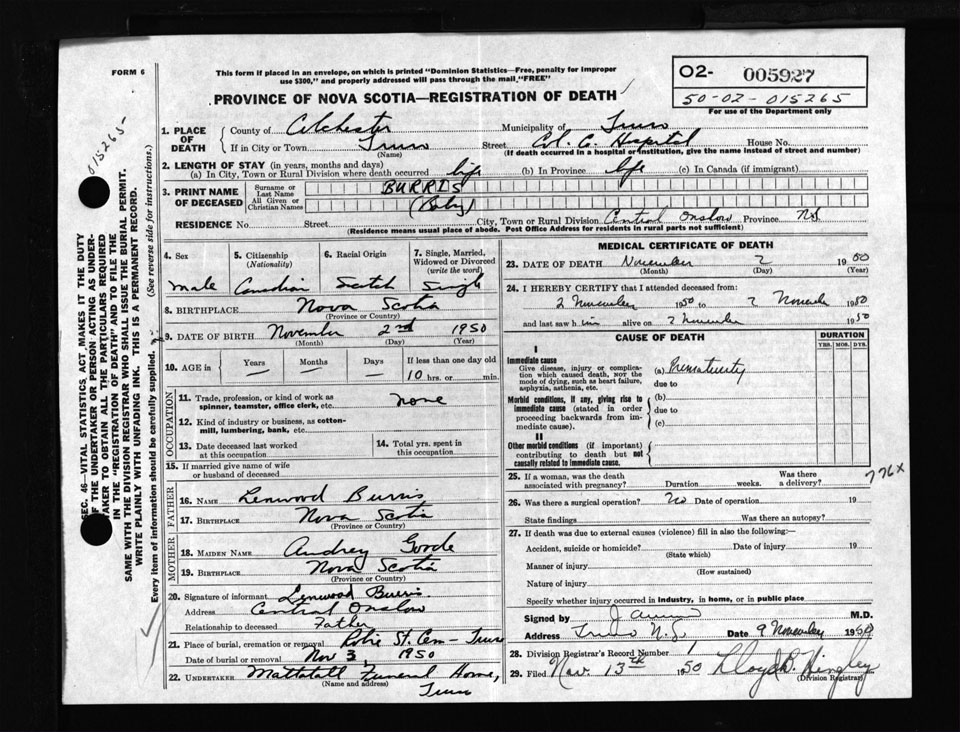 FORM 6
This form if placed in an envelope, on which is printed "Dominion Statistics—Free, penalty for improper
use $300," and properly addressed will pass through the mail, "FREE"
PROVINCE OF NOVA SCOTIA—REGISTRATION OF DEATH
O2- 005927
50-02-015265
For use of the Department only
015265-
1. PLACE OF DEATH County of Colchester Municipality of Truro
If in City or Town Truro Street Col. C. Hospital House No.
(Name) (If death occurred in a hospital or institution, give the name instead of street and number)
2. LENGTH OF STAY (in years, months and days)
(a) In City, Town or Rural Division where death occurred life (b) In Province life (c) In Canada (if immigrant)
3. PRINT NAME OF DECEASED Surname or Last Name BURRIS
All Given or Christian Names (Baby)
RESIDENCE No. Street City, Town or Rural Division Central Onslow Province NS
(Residence means usual place of abode. Post Office Address for residents in rural parts not sufficient)
SEC. 46—VITAL STATISTICS ACT MAKES IT THE DUTY
OF THE UNDERTAKER OR PERSON ACTING AS UNDER-
TAKER TO OBTAIN ALL THE PARTICULARS REQUIRED
IN THE "REGISTRATION OF DEATH" AND TO FILE THE
SAME WITH THE DIVISION REGISTRAR WHO SHALL ISSUE THE BURIAL PERMIT.
WRITE PLAINLY WITH UNFADING INK. THIS IS A PERMANENT RECORD.
Every item of information should be carefully supplied. (See reverse side for instructions.)
4. Sex 5. Citizenship (Nationality) 6. Racial Origin 7. Single, Married, Widowed or Divorced (write the word)
male Canadian Scotch Single
8. BIRTHPLACE Nova Scotia
(Province or Country)
9. DATE OF BIRTH November 2nd 1950
(Month) (Day) (Year)
10. AGE in Years Months Days If less than one day old
— — — 10 hrs. or min.
OCCUPATION
11. Trade, profession, or kind of work as
spinner, teamster, office clerk, etc. none
12. Kind of industry or business, as cotton-
mill, lumbering, bank, etc.
13. Date deceased last worked at this occupation 14. Total yrs. spent in this occupation
15. If married give name of wife
or husband of deceased
FATHER
16. NAME Lenwood Burris
17. BIRTHPLACE Nova Scotia
(Province or Country)
MOTHER
18. MAIDEN NAME Audrey
19. BIRTHPLACE Nova Scotia
(Province or Country)
20. Signature of informant Lenwood Burris
Address Central Onslow
Relationship to deceased Father
21. Place of burial, cremation or removal Robie St. Cem — Truro
Date of burial or removal Nov 3 1950
22. UNDERTAKER Mattatall Funeral Home,
(Name and address) Truro
MEDICAL CERTIFICATE OF DEATH
23. DATE OF DEATH November 2 1950
(Month) (Day) (Year)
24. I HEREBY CERTIFY that I attended deceased from:
2 November 1950 to 2 November 1950
and last saw him alive on 2 November 1950
CAUSE OF DEATH DURATION
YRS. MOS. DYS.
I
Immediate cause
Give disease, injury or complica-
tion which caused death, not the
mode of dying, such as heart failure,
asphyxia, asthenia, etc.
(a) Prematurity
due to
Morbid conditions, if any, giving rise to
immediate cause (stated in order
proceeding backwards from im-
mediate cause).
(b)
due to
(c)
II
Other morbid conditions (if important)
contributing to death but not
causally related to immediate cause.
776X
25. If a woman, was the death associated with pregnancy? Duration weeks. Was there a delivery?
26. Was there a surgical operation? No Date of operation 19
State findings Was there an autopsy?
27. If death was due to external causes (violence) fill in also the following:—
Accident, suicide or homicide? Date of injury 19
(State which)
Manner of injury
(How sustained)
Nature of injury
Specify whether injury occurred in industry, in home, or in public place
Signed by M.D.
Address Truro N.S. Date 9 November 1950
28. Division Registrar's Record Number 1
29. Filed Nov. 13th 1950 Lloyd
(Division Registrar)